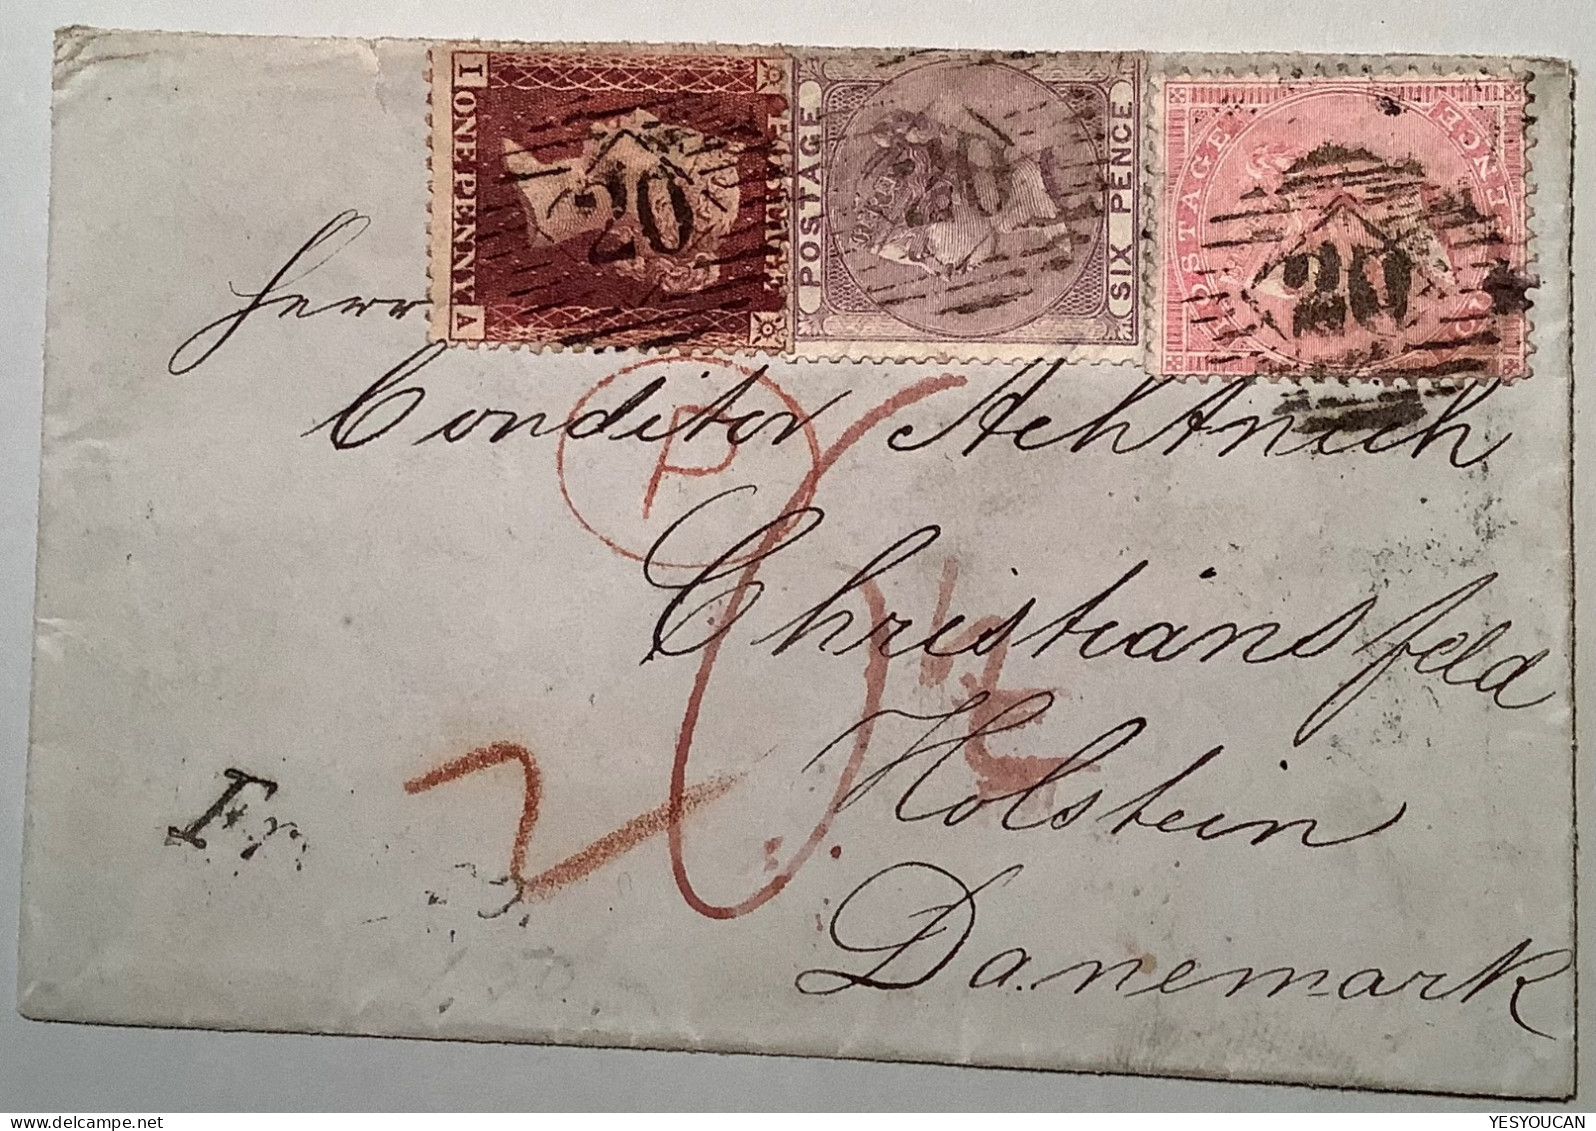 I ONE PENNY A
POSTAGE
SIX PENCE
POSTAGE
PENCE
20
20
20
Herr
P
Conditor Achtnich
Christiansfeld
Holstein
Danemark
Fr
2
YESYOUCAN